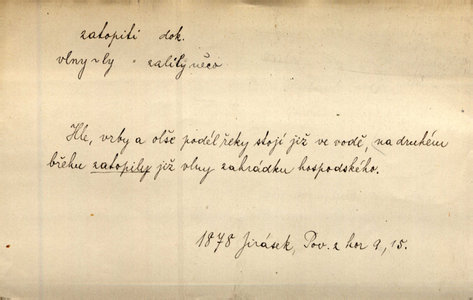 zatopiti dok.
vlny ~ly zalily něco
Hle, vrby a olše podél řeky stojí již ve vodě, na druhém
břehu zatopily již vlny zahrádku hospodského.
1878 Jirásek, Pov. z hor 9, 15.